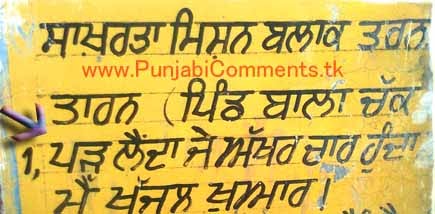 ਸਾਖ਼ਰਤਾ ਮਿਸ਼ਨ ਬਲਾਕ ਤਰਨ
www.PunjabiComments.tk
ਤਾਰਨ (ਪਿੰਡ ਬਾਲਾ ਚੱਕ
1, ਪੜ ਲੈਂਦਾ ਜੇ ਅੱਖਰ ਚਾਰ ਹੁੰਦਾ
ਮੈਂ ਖੱਜਲ ਖ਼ੁਆਰ।